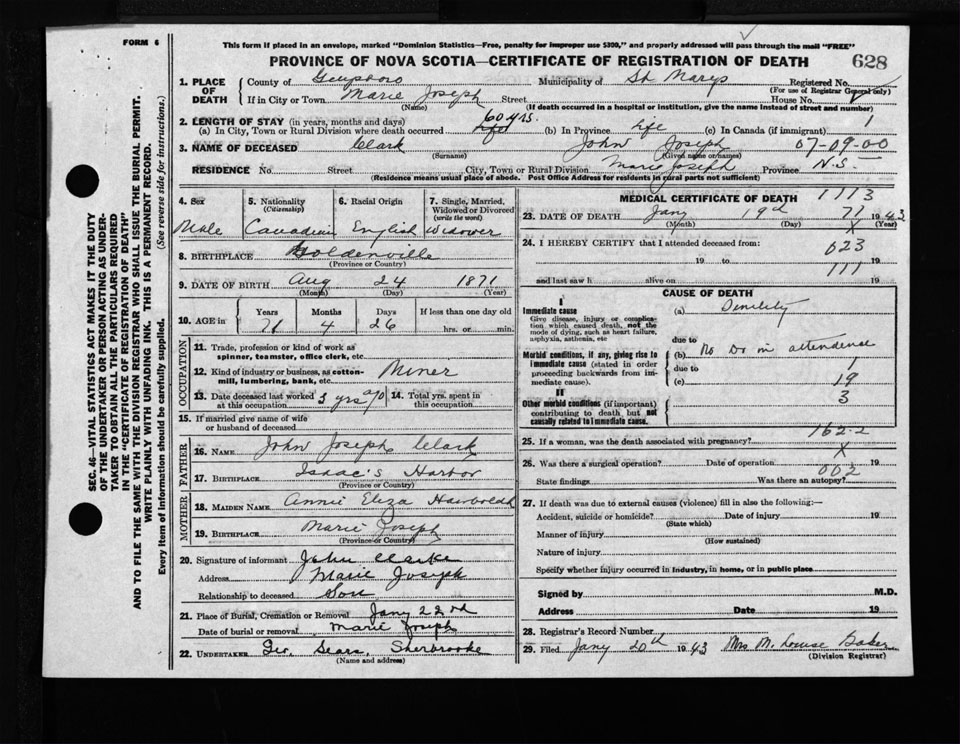 FORM 6
This form if placed in an envelope, marked "Dominion Statistics—Free, penalty for improper use $300," and properly addressed will pass through the mail "FREE"
PROVINCE OF NOVA SCOTIA—CERTIFICATE OF REGISTRATION OF DEATH
628
1. PLACE OF DEATH
County of Guysboro Municipality of St Marys Registered No.
(For use of Registrar General only)
If in City or Town Marie Joseph Street House No.
(Name) (If death occurred in a hospital or institution, give the name instead of street and number)
2. LENGTH OF STAY (in years, months and days)
(a) In City, Town or Rural Division where death occurred 60 yrs. (b) In Province life (c) In Canada (if immigrant) 1
3. NAME OF DECEASED Clark John Joseph 07-09-00
(Surname) (Given name or names)
RESIDENCE No. Street City, Town or Rural Division Marie Joseph Province N.S
(Residence means usual place of abode. Post Office Address for residents in rural parts not sufficient)
4. Sex
Male
5. Nationality (Citizenship)
Canadian
6. Racial Origin
English
7. Single, Married, Widowed or Divorced (write the word)
Widower
8. BIRTHPLACE Goldenville
(Province or Country)
9. DATE OF BIRTH Aug 24 1871
(Month) (Day) (Year)
10. AGE in Years Months Days If less than one day old
71 4 26 hrs. or min.
OCCUPATION
11. Trade, profession or kind of work as spinner, teamster, office clerk, etc.
12. Kind of industry or business, as cotton-mill, lumbering, bank, etc. Miner
13. Date deceased last worked at this occupation 3 yrs ago
14. Total yrs. spent in this occupation
15. If married give name of wife or husband of deceased
FATHER
16. NAME John Joseph Clark
17. BIRTHPLACE Isaac's Harbor
(Province or Country)
MOTHER
18. MAIDEN NAME Annie Eliza
19. BIRTHPLACE Marie Joseph
(Province or Country)
20. Signature of informant John Clarke
Address Marie Joseph
Relationship to deceased Son
21. Place of Burial, Cremation or Removal Jany 22nd
Date of burial or removal Marie Joseph
22. UNDERTAKER Geo. Sears, Sherbrooke
(Name and address)
MEDICAL CERTIFICATE OF DEATH 1113
23. DATE OF DEATH Jany 19th 71 1943
(Month) (Day) (Year)
X
24. I HEREBY CERTIFY that I attended deceased from:
023
19 to 19
111
and last saw h alive on 19
CAUSE OF DEATH
I
Immediate cause
Give disease, injury or complication which caused death, not the mode of dying, such as heart failure, asphyxia, asthenia, etc
(a) Senility
due to
Morbid conditions, if any, giving rise to immediate cause (stated in order proceeding backwards from immediate cause).
(b) No Dr in attendence
due to 1
(c) 19
II
Other morbid conditions (if important) contributing to death but not causally related to immediate cause.
3
162-2
25. If a woman, was the death associated with pregnancy?
X
26. Was there a surgical operation? Date of operation 19
002
State findings Was there an autopsy?
27. If death was due to external causes (violence) fill in also the following:—
Accident, suicide or homicide? Date of injury 19
(State which)
Manner of injury
(How sustained)
Nature of injury
Specify whether injury occurred in industry, in home, or in public place
Signed by M.D.
Address Date 19
28. Registrar's Record Number
29. Filed Jany 20th 1943 Mrs M. Louise Baker
(Division Registrar)
SEC. 46—VITAL STATISTICS ACT MAKES IT THE DUTY
OF THE UNDERTAKER OR PERSON ACTING AS UNDER-
TAKER TO OBTAIN ALL THE PARTICULARS REQUIRED
IN THE "CERTIFICATE OF REGISTRATION OF DEATH"
AND TO FILE THE SAME WITH THE DIVISION REGISTRAR WHO SHALL ISSUE THE BURIAL PERMIT.
WRITE PLAINLY WITH UNFADING INK. THIS IS A PERMANENT RECORD.
Every item of information should be carefully supplied. (See reverse side for instructions.)